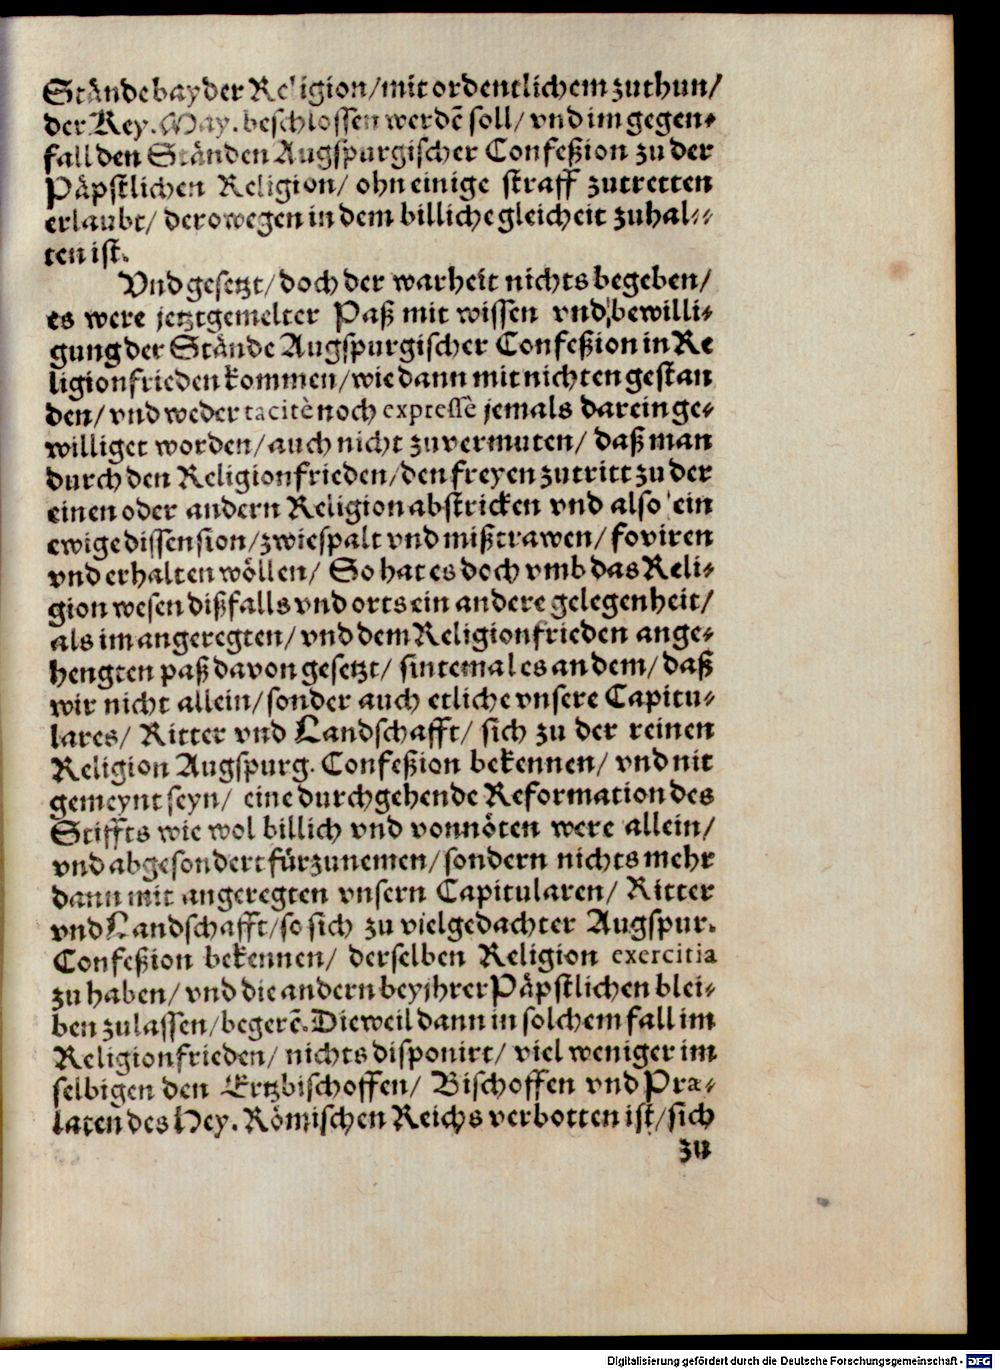 Stände bayder Religion/mit ordentlichem zuthun/
der Key. May. beschlossen werdẽ soll/ vnd im gegen⸗
fall den Ständen Augspurgischer Confeßion zu der
Päpstlichen Religion/ ohn einige straff zutretten
erlaubt/ derowegen in dem billiche gleicheit zuhal⸗
ten ist.
Vnd gesetzt/ doch der warheit nichts begeben/
es were jetztgemelter Paß mit wissen vnd bewilli⸗
gung der Stände Augspurgischer Confeßion in Re
ligionfrieden kommen/ wie dann mit nichten gestan
den/ vnd weder tacitè noch expressè jemals darein ge⸗
williget worden/ auch nicht zuvermuten/ daß man
durch den Religionfrieden/ den freyen zutritt zu der
einen oder andern Religion abstricken vnd also ein
ewige dissension/ zwiespalt vnd mißtrawen/ foviren
vnd erhalten wöllen/ So hat es doch vmb das Reli⸗
gion wesen dißfalls vnd orts ein andere gelegenheit/
als im angeregten/ vnd dem Religionfrieden ange⸗
hengten paß davon gesetzt/ sintemal es an dem/ daß
wir nicht allein/ sonder auch etliche vnsere Capitu⸗
lares/ Ritter vnd Landschafft/ sich zu der reinen
Religion Augspurg. Confeßion bekennen/ vnd nit
gemeynt seyn/ eine durchgehende Reformation des
Stiffts wie wol billich vnd vonnöten were allein/
vnd abgesondert fürzunemen/ sondern nichts mehr
dann mit angeregten vnsern Capitularen/ Ritter
vnd Landschafft/ so sich zu vielgedachter Augspur.
Confeßion bekennen/ derselben Religion exercitia
zu haben/ vnd die andern bey jhrer Päpstlichen blei⸗
ben zulassen/ begerẽ. Dieweil dann in solchem fall im
Religionfrieden/ nichts disponirt/ viel weniger im
selbigen den Ertzbischoffen/ Bischoffen vnd Præ⸗
laten des Hey. Römischen Reichs verbotten ist/ sich
zu
Digitalisierung gefördert durch die Deutsche Forschungsgemeinschaft - DFG